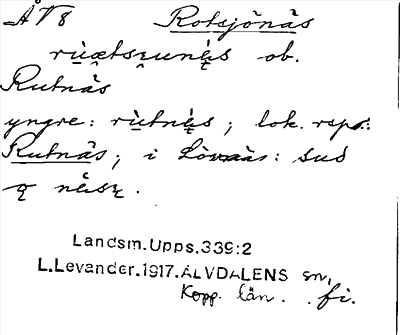 ÅV8 Rotsjönäs
rùætsꭓunę̀s ob.
Rutnäs
yngre: rùtnę̀s; lok. rspr:
Rutnäs; i Lövnäs: sud
næsꭓ.
Landsm. Upps. 339:2
L. Levander. 1917. ÄLVDALENS sn,
Kopp. län. . fi.